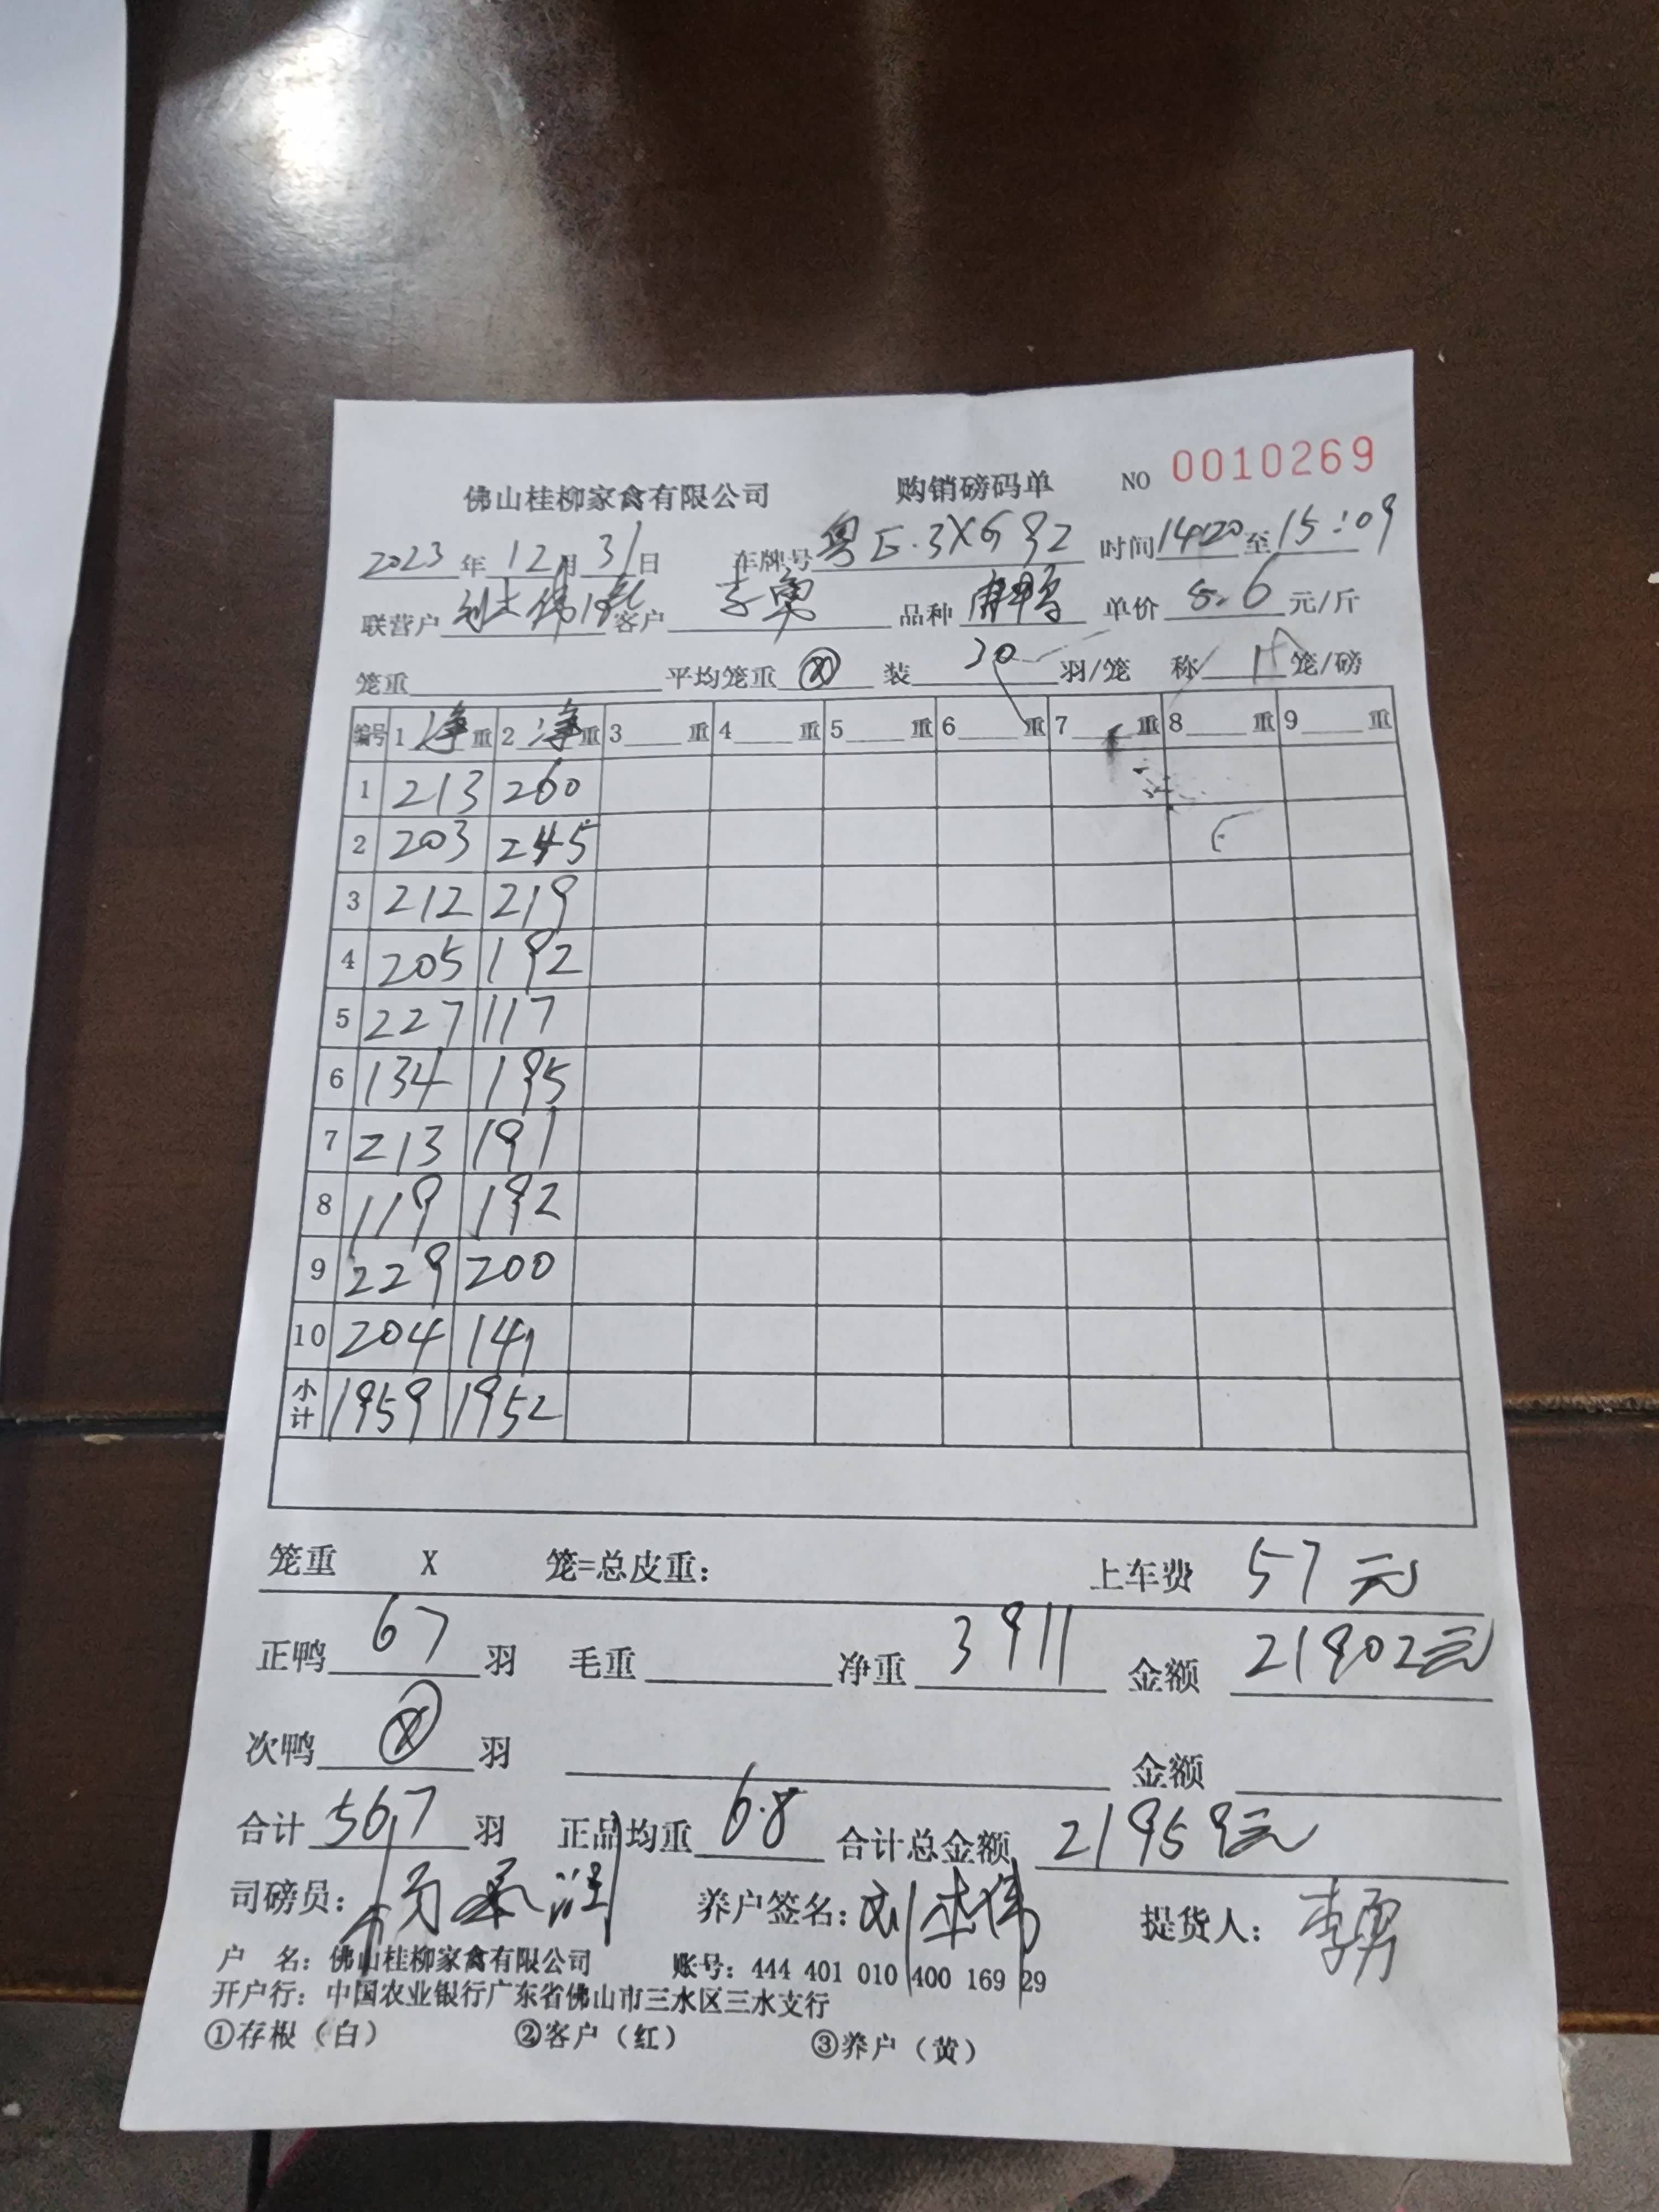 佛山桂柳家禽有限公司 购销磅码单 NO 0010269
2023年12月31日 车牌号粤E·3X692 时间14:20至15:09
联营户 客户 李勇 品种 单价 5.6 元/斤
笼重 平均笼重 ⊗ 装 30 羽/笼 称 1 笼/磅
编号 1 净重 2 净重 3 重 4 重 5 重 6 重 7 重 8 重 9 重
1 213 260
2 203 245
3 212 219
4 205 192
5 227 117
6 134 195
7 213 191
8 119 192
9 229 200
10 204 141
小计 1959 1952
笼重 X 笼=总皮重: 上车费 57元
正鸭 67 羽 毛重 净重 3911 金额 21902元
次鸭 ⊗ 羽 金额
合计 567 羽 正品均重 6.8 合计总金额 21959元
司磅员: 养户签名: 提货人: 李勇
户 名: 佛山桂柳家禽有限公司 账号: 444 401 010 400 169 29
开户行: 中国农业银行广东省佛山市三水区三水支行
①存根（白） ②客户（红） ③养户（黄）